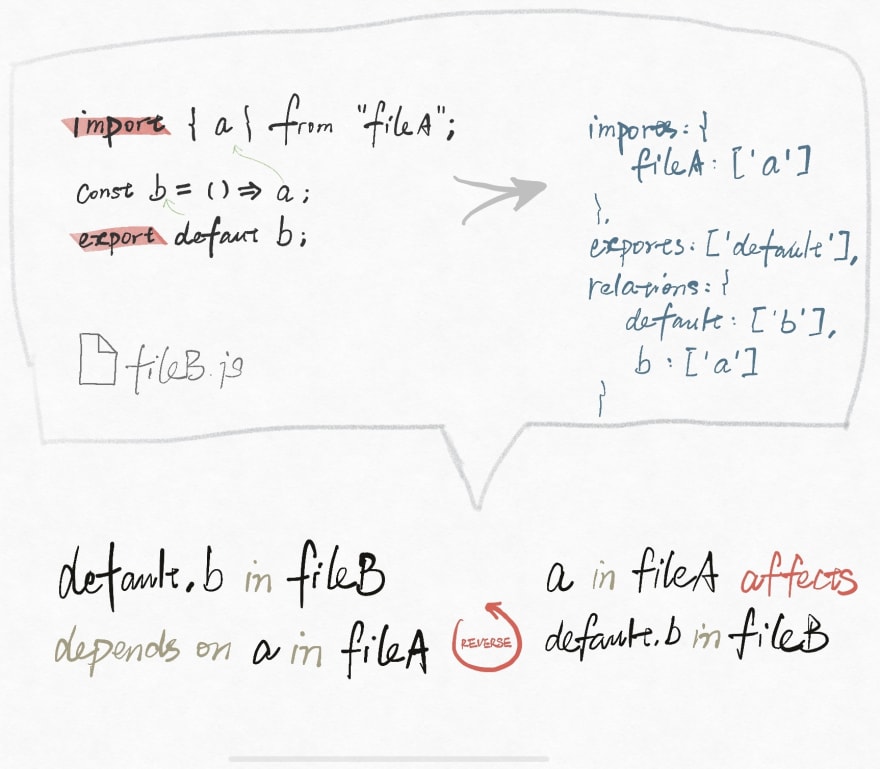 import { a } from "fileA";
const b = () => a;
export default b;
fileB.js
imports: {
fileA: ['a']
},
exports: ['default'],
relations: {
default: ['b'],
b : ['a']
}
default, b in fileB
depends on a in fileA
REVERSE
a in fileA affects
default, b in fileB